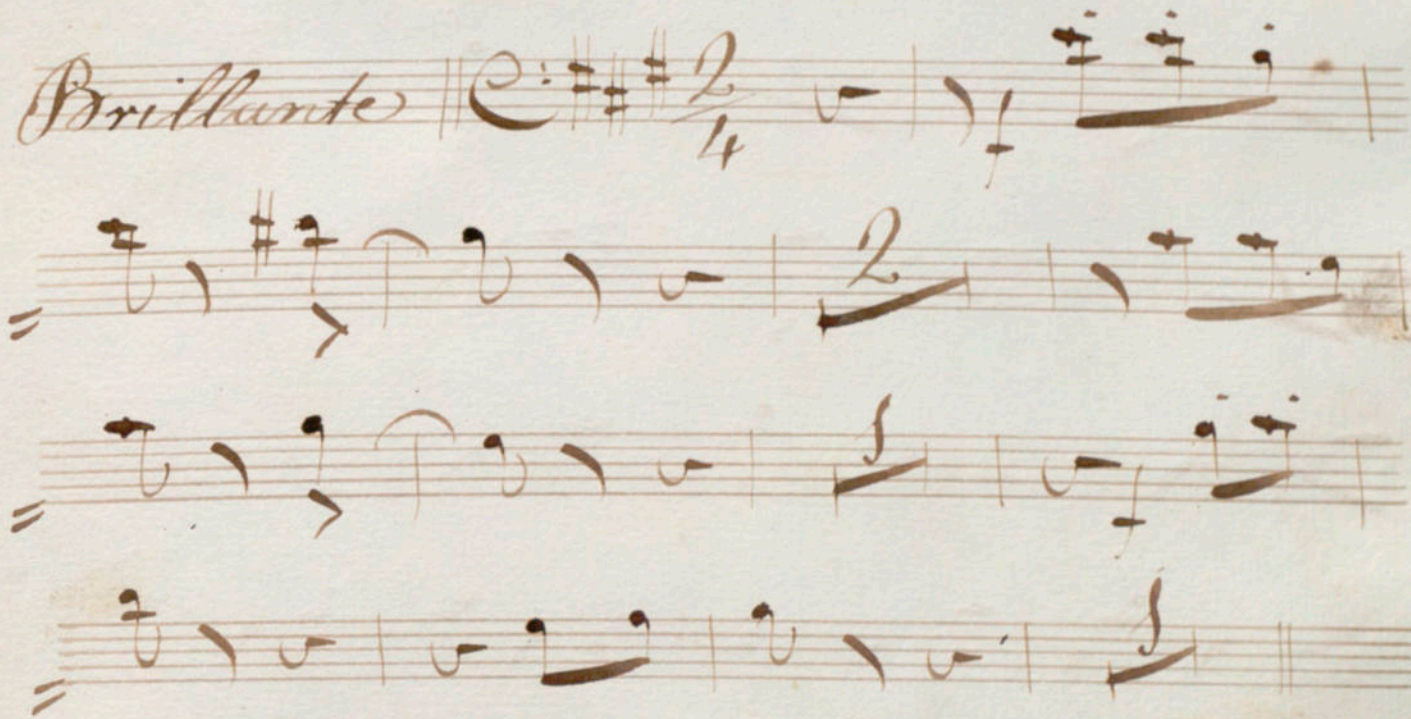 Brillante 2/4 f
2
f
1
f
1